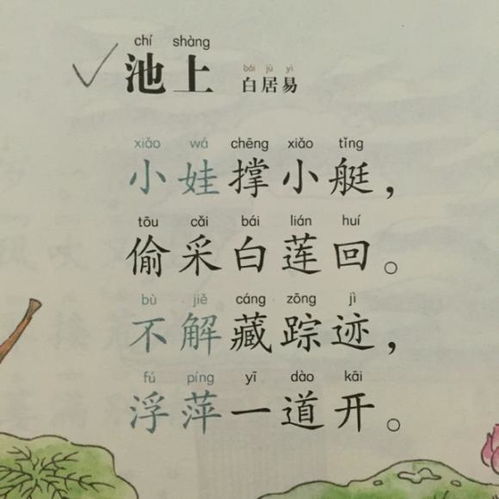 chí shàng
池上 bái jū yì 白居易
xiǎo wá chēng xiǎo tǐng
小娃撑小艇，
tōu cǎi bái lián huí
偷采白莲回。
bù jiě cáng zōng jì
不解藏踪迹，
fú píng yī dào kāi
浮萍一道开。